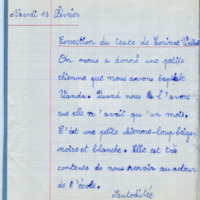 Mardi 13 Février
Correction du texte de Corinne
On nous a donné une petite
chienne que nous avons baptisée
Wanda. Quand nous l'avons
eue elle n'avait qu'un mois.
C'est une petite chienne-loup beige,
noire et blanche. Elle est très
contente de nous revoir au retour
de l'école.